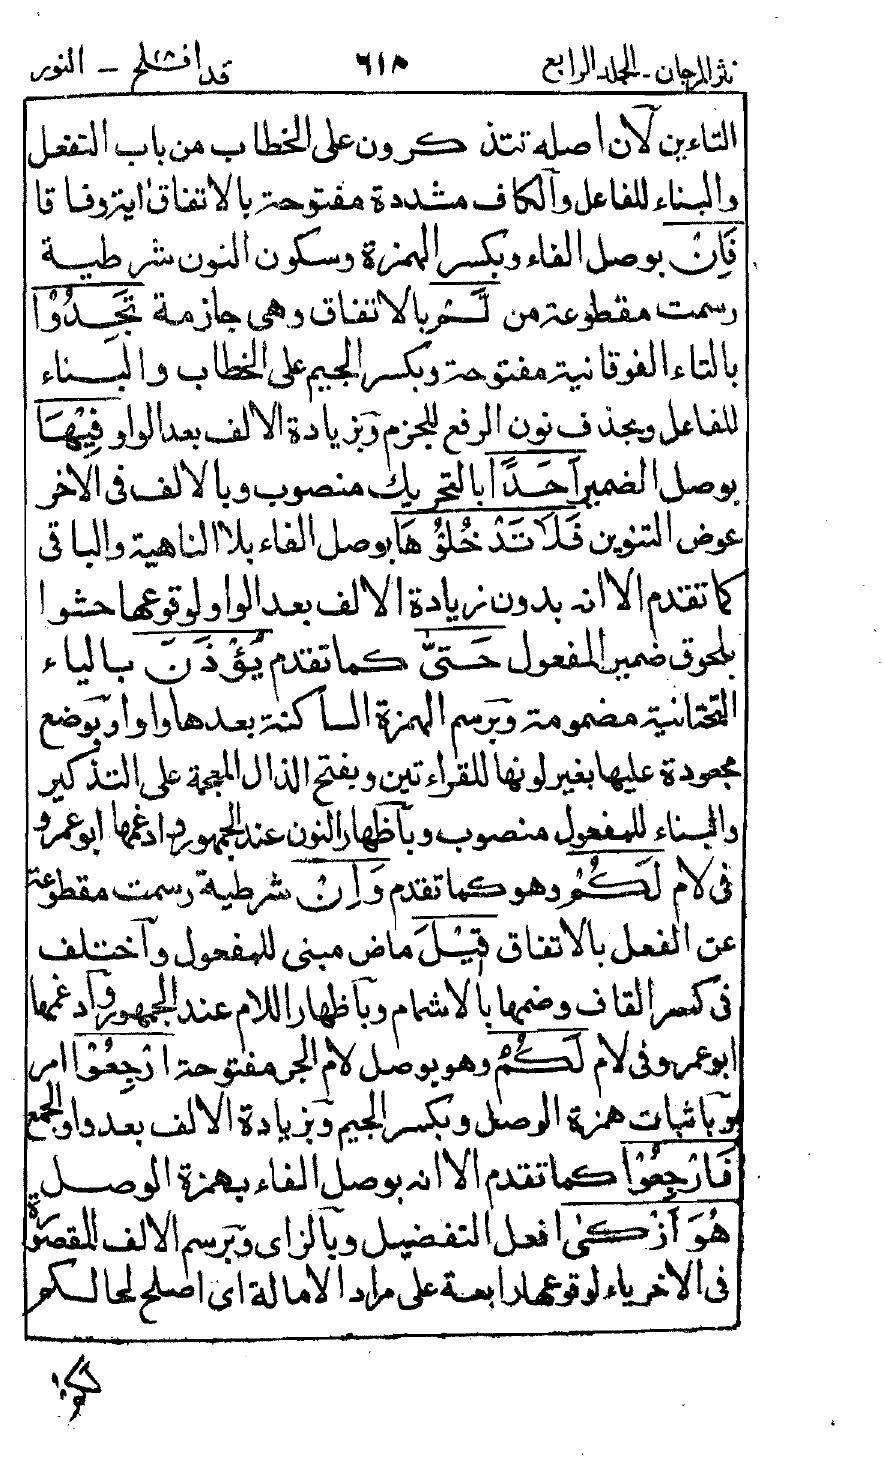 نثر المرجان ـ المجلد الرابع ٦١٨ قد افلح ١٨ ـ النور
التاءين لان اصله تتذكرون على الخطاب من باب التفعل
والبناء للفاعل والكاف مشددة مفتوحة بالاتفاق
فَاِنْ بوصل الفاء وبكسر الهمزة وسكون النون شرطية
رسمت مقطوعة من لَّمْ بالاتفاق وهى جازمة تَجِدُوْا
بالتاء الفوقانية مفتوحة وبكسر الجيم على الخطاب والبناء
للفاعل وبحذف نون الرفع للجزم وبزيادة الالف بعد الواو فِيْهَا
بوصل الضمير اَحَدًا بالتحريك منصوب وبالالف فى الاخر
عوض التنوين فَلَا تَدْخُلُوْهَا بوصل الفاء بلا الناهية والباقى
كما تقدم الا انه بدون زيادة الالف بعد الواو لوقوعها حشوا
بلحوق ضمير المفعول حَتىّٰ كما تقدم يُؤْذَنَ بالياء
التحتانية مضمومة وبرسم الهمزة الساكنة بعدها واوا وبوضع
مجعودة عليها بغير لونها للقراءتين وبفتح الذال المعجمة على التذكير
والبناء للمفعول منصوب وباظهار النون عند الجمهور وادغمها ابو عمرو
فى لام لَكُمْ وهو كما تقدم وَاِنْ شرطية رسمت مقطوعة
عن الفعل بالاتفاق قِيْلَ ماض مبنى للمفعول واختلف
فى كسر القاف وضمها بالاشمام وباظهار اللام عند الجمهور وادغمها
ابو عمرو فى لام لَكُمْ وهو بوصل لام الجر مفتوحة ارْجِعُوْا امر
وباثبات همزة الوصل وبكسر الجيم وبزيادة الالف بعد واو الجمع
فَارْجِعُوْا كما تقدم الا انه بوصل الفاء بهمزة الوصل
هُوَ اَزْكىٰ افعل التفضيل وبالزاى وبرسم الالف المقصورة
فى الاخر ياء لوقوعها رابعة على مراد الامالة اى اصلح لحالكم